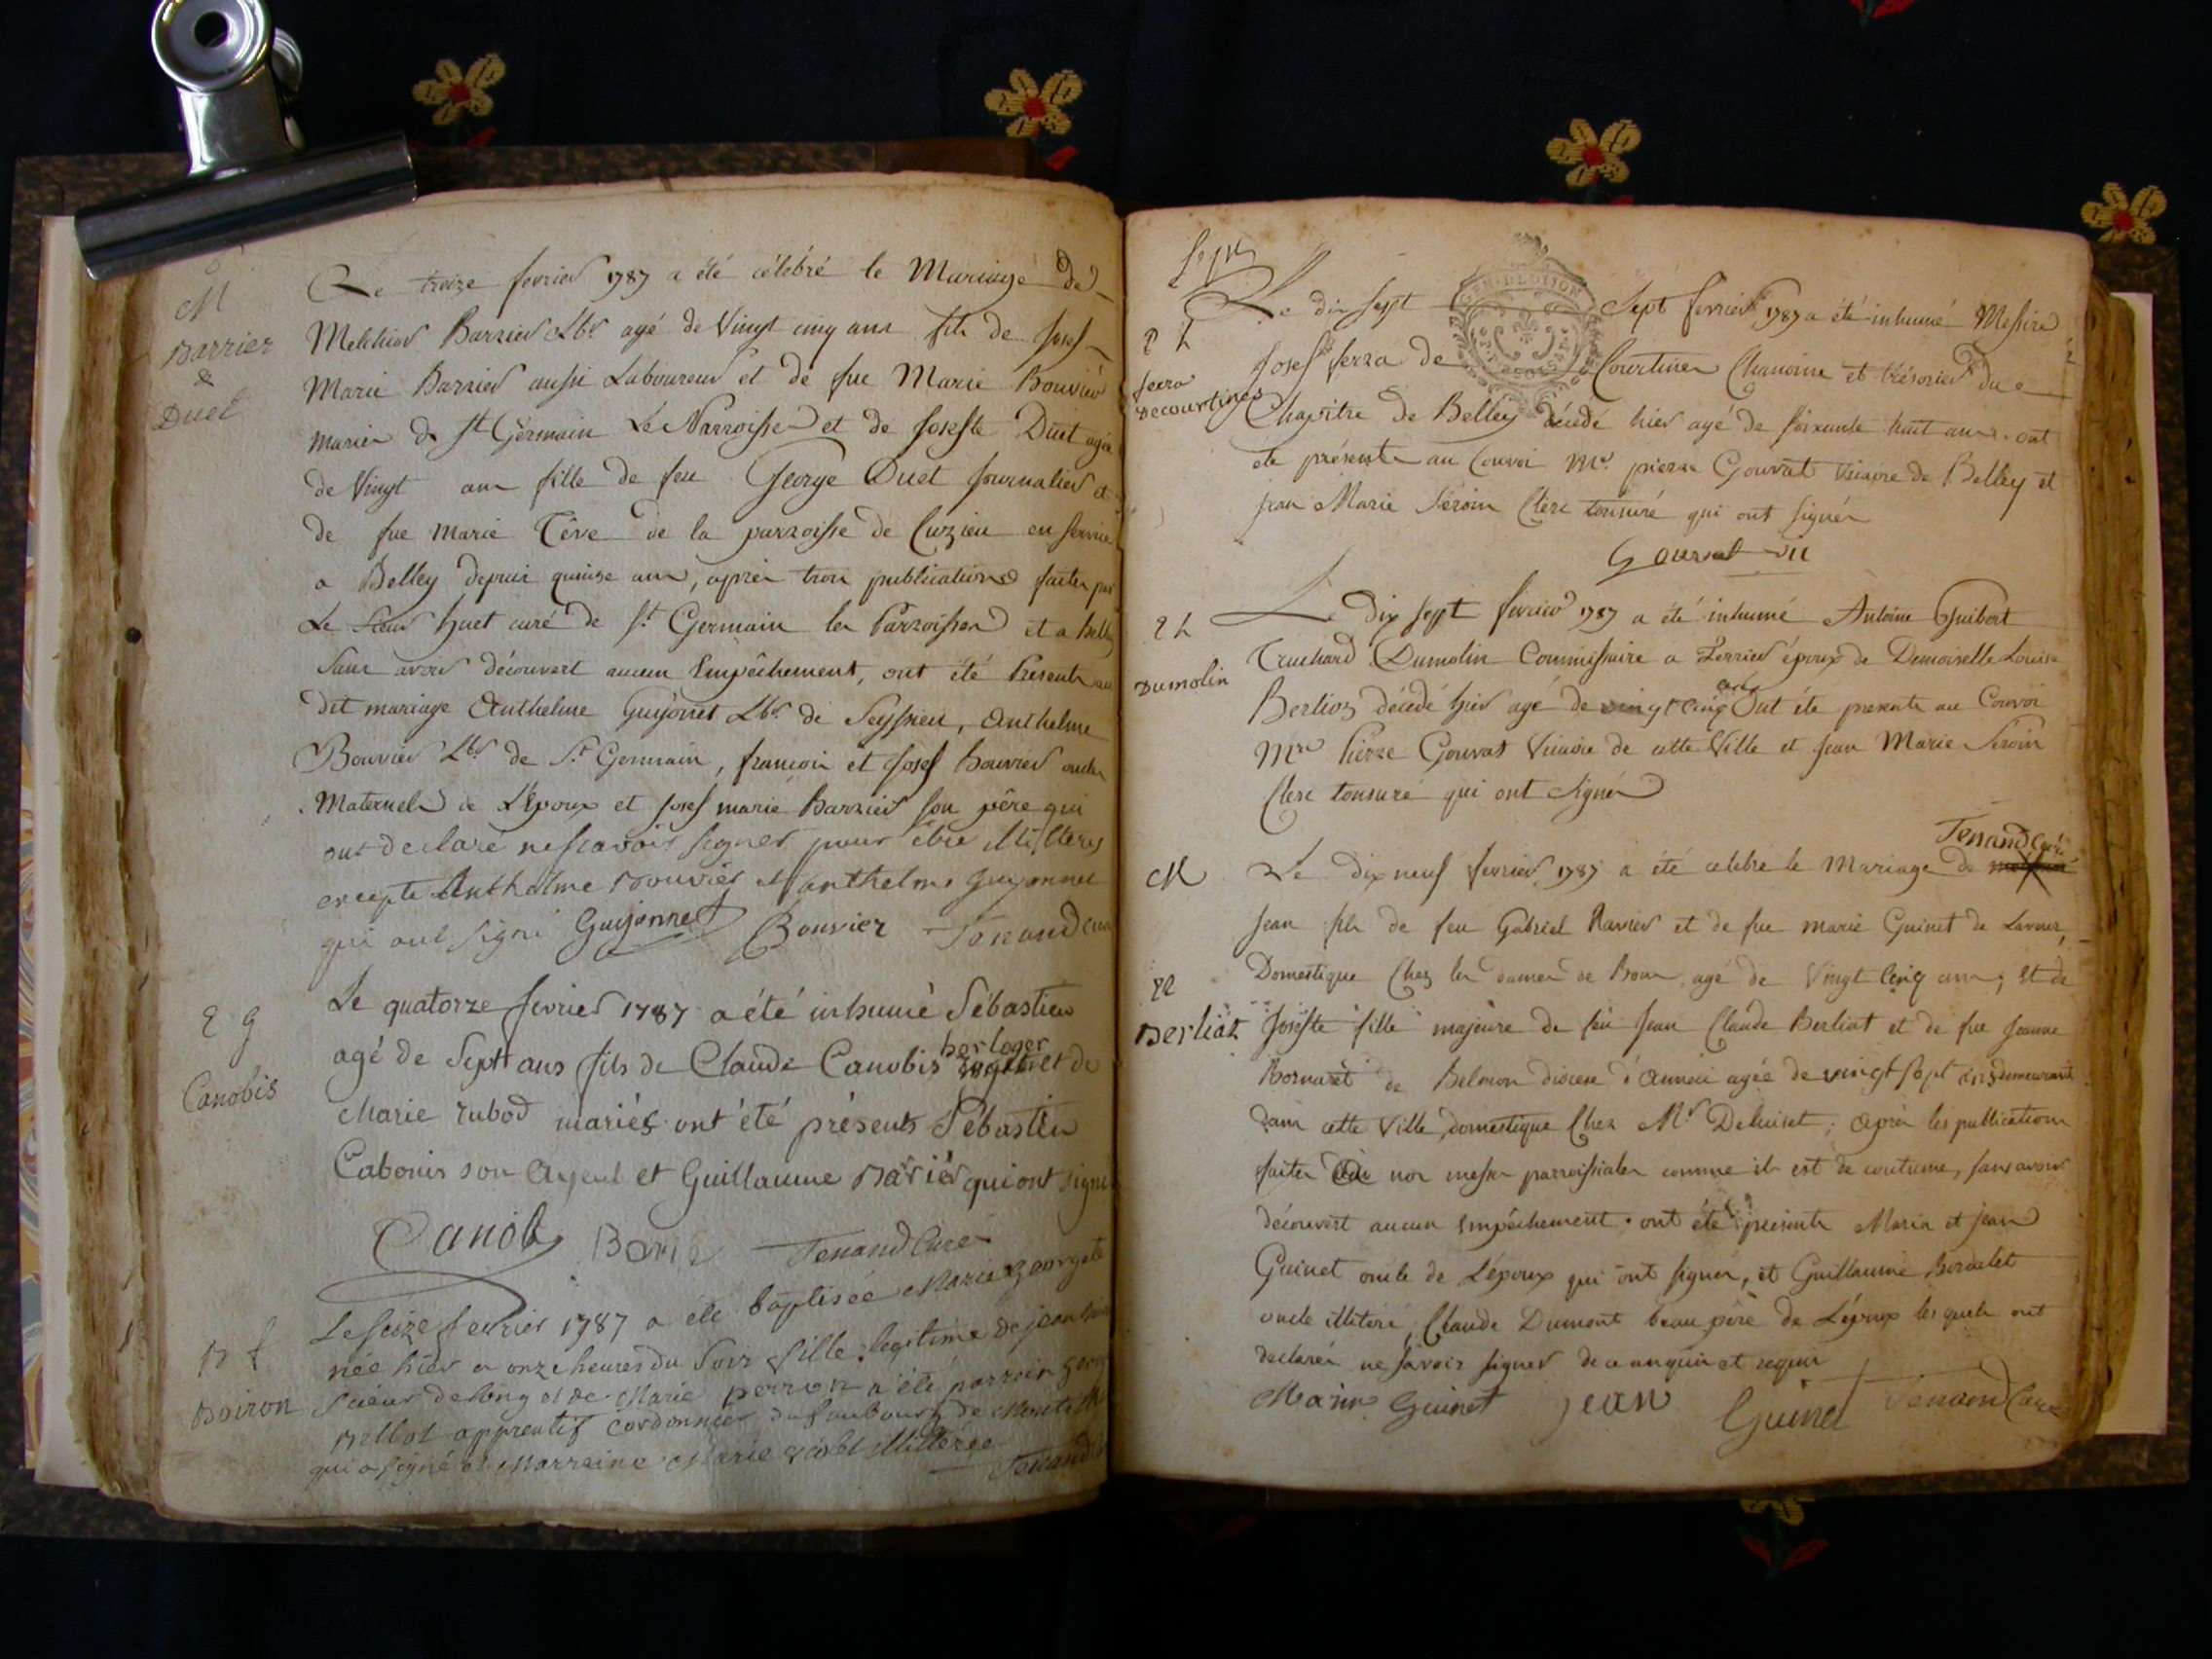 M
Barrier
&
Duet
Le treize fevrier 1787 a été célébré le Mariage de
Melchior Barrier Lbr agé de Vingt cinq ans fils de Josef
Marie Barrier aussi Laboureur et de fue Marie Bouvier
mariés de St Germain Les Parroisses et de Josefte Duet agée
de Vingt ans fille de feu George Duet Journalier et
de fue Marie Téve de la parroisse de Cuzieu en service
a Belley depuis quinse ans, après trois publications faites par
Le Sieur huet curé de St Germain les Parroisses et a Belley
Sans avoir découvert aucun Empêchement, ont été Presents au
dit mariage Anthelme Guyonet Lbr de Seyssieu, Anthelme
Bouvier Lbr de St Germain, francois et Josef bouvier oncles
Maternels de L'Epoux et Josef marie Barrier son père qui
ont declaré ne scavoir signer pour être illitteres
excepte Anthelme Bouvier et Anthelme Guyonnet
qui ont signé Guijonnet Bouvier Tenand curé
2 g
Canobis
Le quatorze fevrier 1787 a été inhumé Sébastien
horloger
agé de Sept ans fils de Claude Canobis et de
Marie rubod mariés ont été présents Sébastien
Cabonis son Ayeul et Guillaume Barier qui ont signé
Canobis Tenand Curé
B f
Boiron
Le seize fevrier 1787 a été baptisée Marie georgete
née hier a onze heures du Soir fille legitime de jean
scieur de long et de Marie perron a été parrain
Bellot apprentif cordonnier du faubourg de
qui a signé et Marraine Marie illiterée
Tenand
sept
2 h
ferra
decourtines
GEN. DE DIJON
Le dix sept Sept fevrier 1787 a été inhumé Messire
Josef ferra de Courtines Chanoine et trésorier du
Chapitre de Belley décédé hier agé de soixante huit ans. ont
été présents au Convoi Mr pierre Gouvat vicaire de Belley et
jean Marie Séroin Clerc tonsuré qui ont signés
Gouvat vic
2 h
Dumolin
Le Dix sept fevrier 1787 a été inhumé Antoine Guibert
Truchard Dumolin Commissaire a Terrier époux de Demoiselle Louise
ans
Berlioz décédé hier agé de vingt cinq Ont été presents au Convoi
Mre Pierre Gouvat Vicaire de cette Ville et Jean Marie Séroin
Clerc tonsuré qui ont Signés
Tenand Curé
M
22
Berliat
Le Dix neuf fevrier 1787 a été celebré le Mariage de
Jean fils de feu Gabriel Ravier et de fue marie Guinet de Lavour,
Domestique Chez les dames de Bons, agé de Vingt Cinq ans; et de
Josefte fille majeure de feu Jean Claude Berliat et de fue Jeanne
Bornaret de Belmon diocese d'Anneci agée de vingt sept ans demeurant
dans cette Ville domestique Chez Mr Deluiset; Après les publications
faites nos messes parroissiales comme il est de coutume, sans avoir
découvert aucun Empêchement. ont été presents Marin et Jean
Guinet oncle de L'époux qui ont signés, et Guillaume Bordalet
oncle illiteré, Claude Dumont beau père de L'époux lesquels ont
declarés ne savoir signer de ce enquis et requis
Marin Guinet jean Guinet Tenand Curé